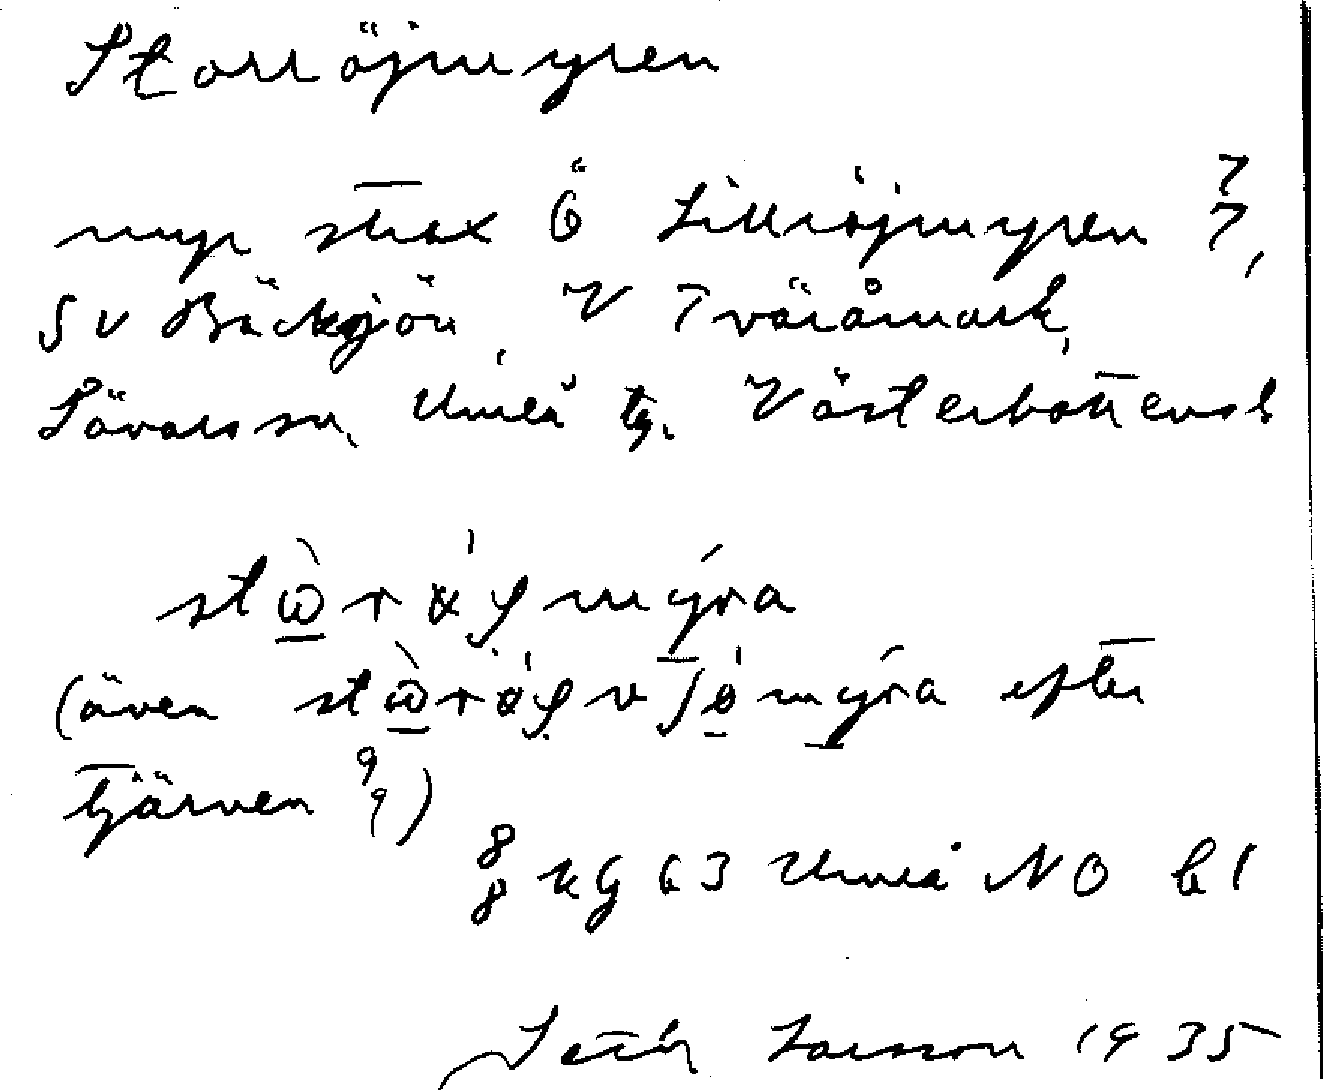 Storröjmyren
myr strax Ö Lillröjmyren 7/7,
SV Bäcksjön V Tväråmark,
Sävars sn, Umeå tg. Västerbottens l
(även efter
tjärven 9/9)
8/8 kg 63 Umeå NO bl
Seth Larsson 1935